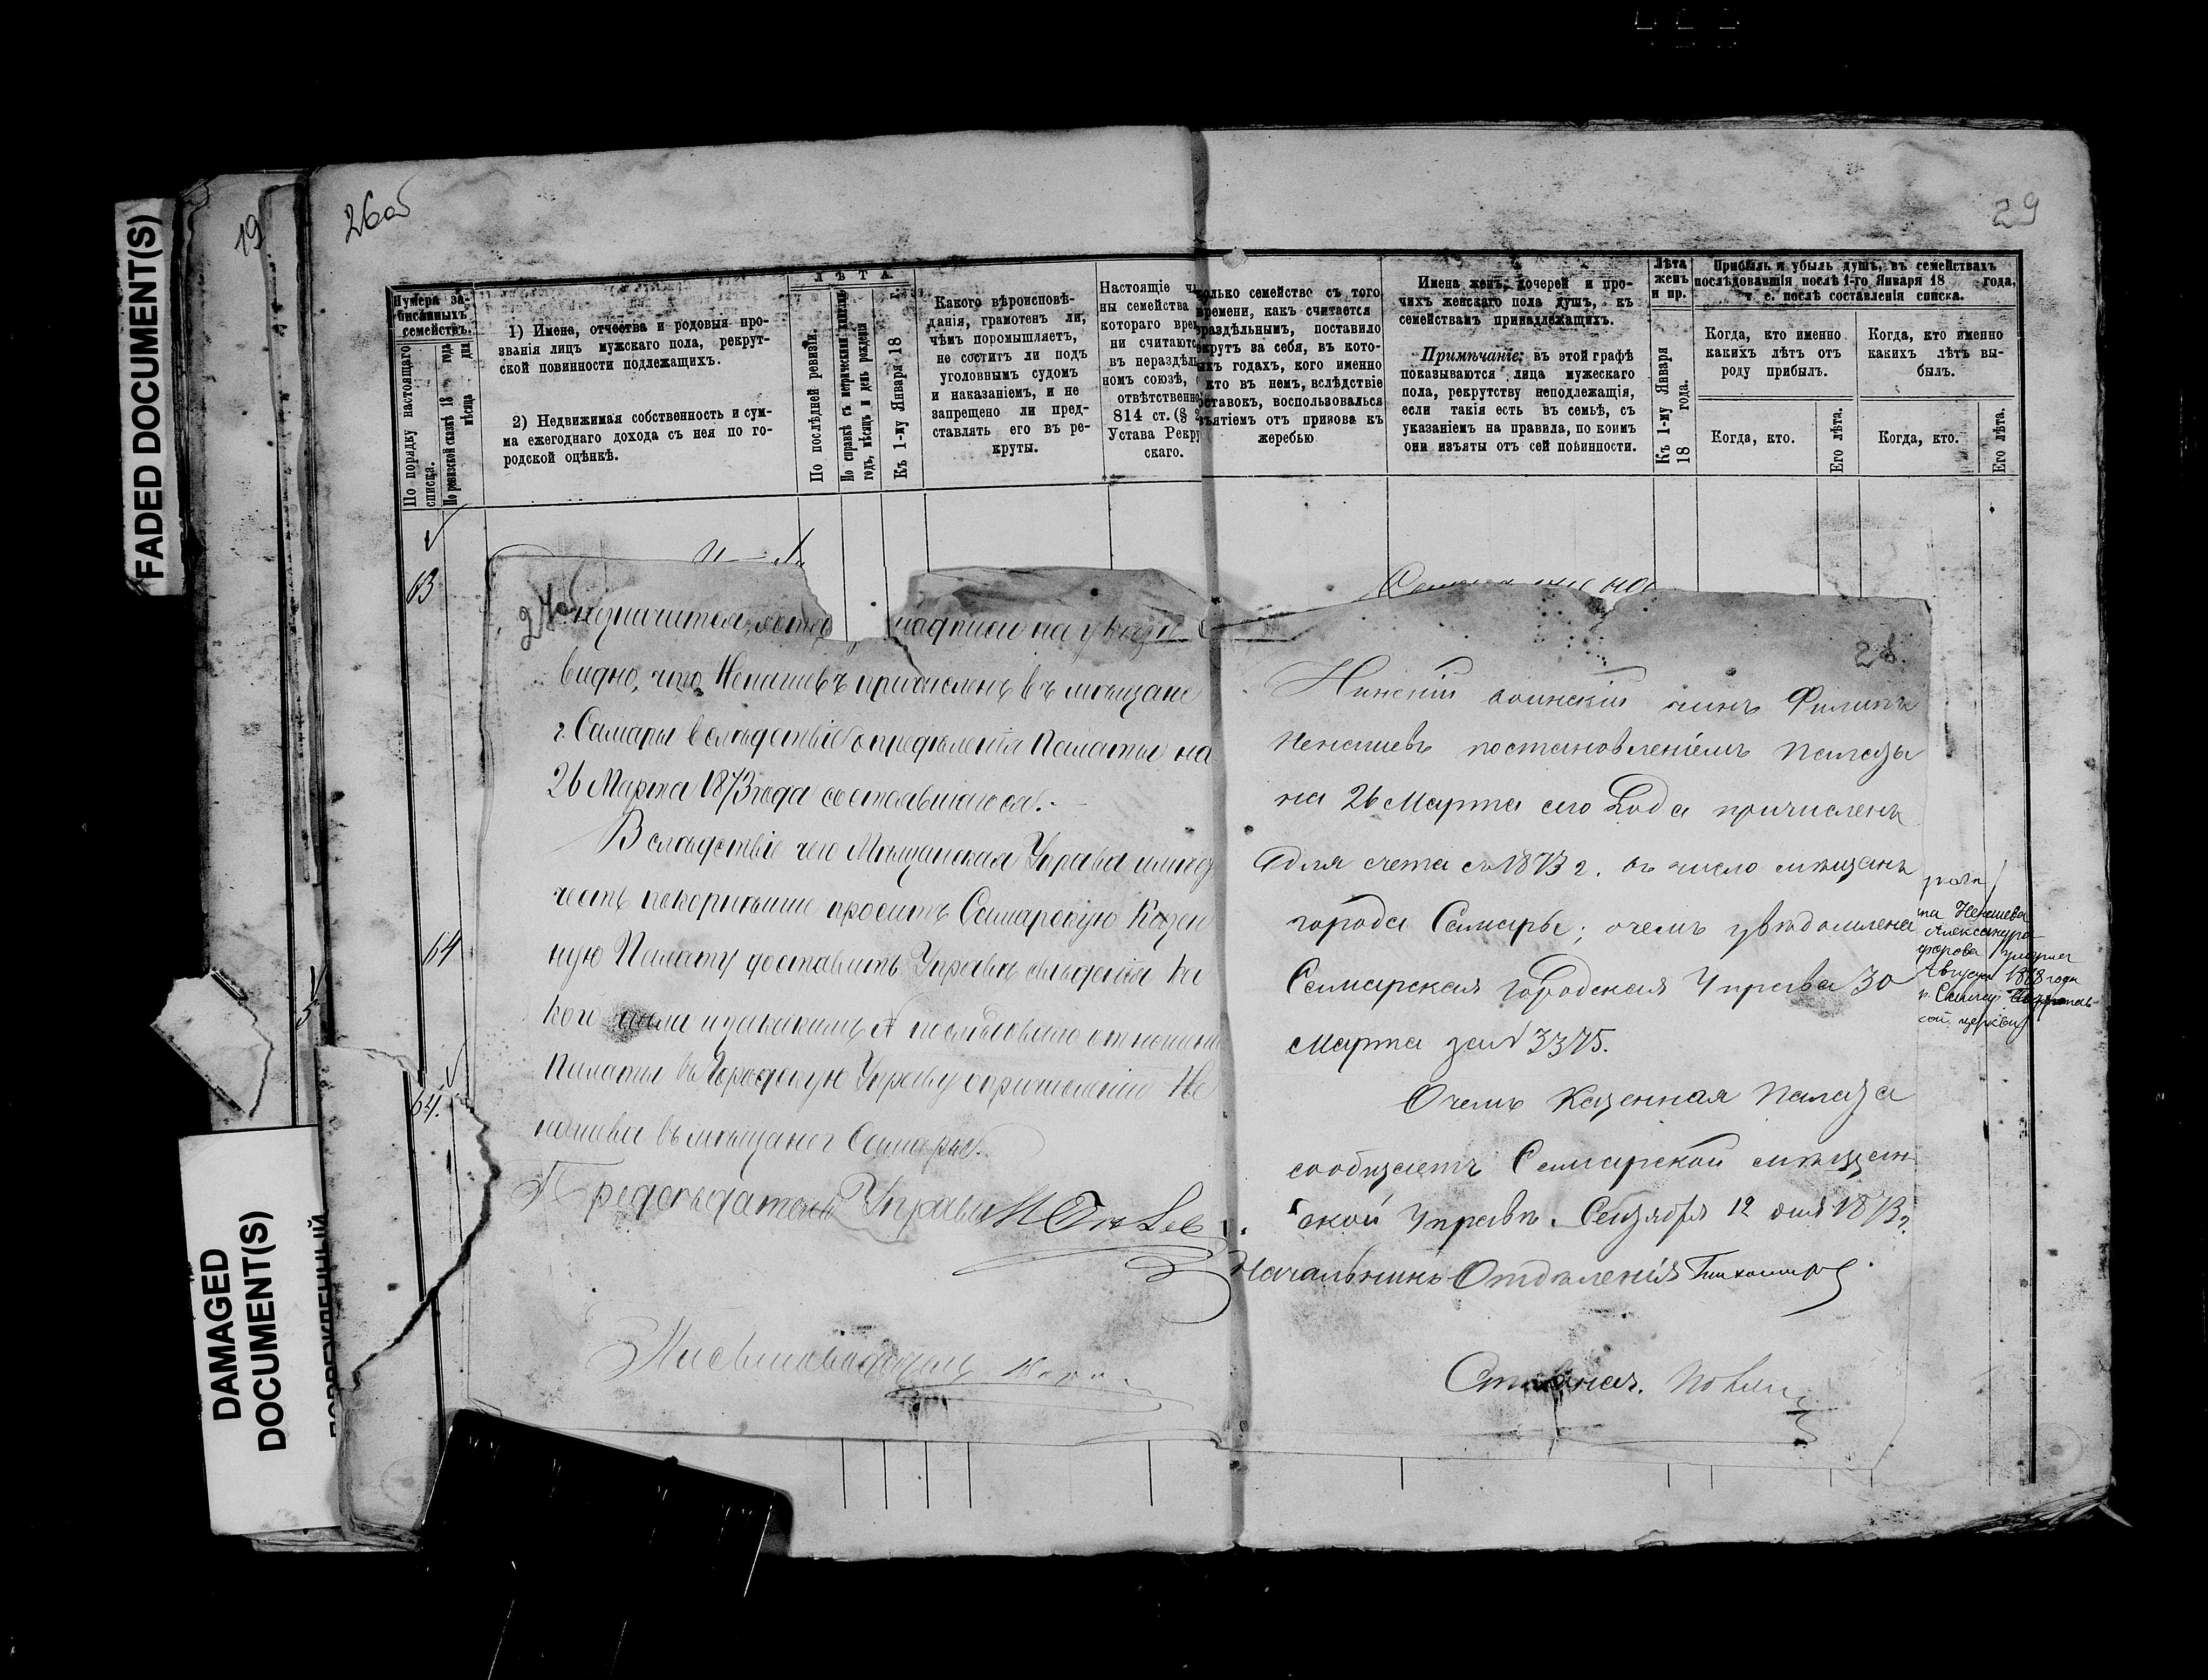 FADED DOCUMENT(S)
DAMAGED
DOCUMENT(S)
19
26об
29
Нумера за-
писанныхъ
семействъ.
По порядку настоящаго
списка.
По ревизской сказкѣ 18 года
мѣсяца дня
1) Имена, отчества и родовыя про-
званія лицъ мужскаго пола, рекрут-
ской повинности подлежащихъ.
2) Недвижимая собственность и сум-
ма ежегоднаго дохода съ нея по го-
родской оцѣнкѣ.
ЛѢТА.
По послѣдней ревизіи.
По справкѣ съ метрическими книгами
годъ, мѣсяцъ и день рожденія
Къ 1-му Января 18 г.
Какого вѣроисповѣ-
данія, грамотенъ ли,
чѣмъ поромышляетъ,
не соститъ ли подъ
уголовнымъ судомъ
и наказаніемъ, и не
запрещено ли пред-
ставлять его въ ре-
круты.
Настоящіе чл
ны семейства
котораго врем
ни считаютс
въ нераздѣль
номъ союзѣ,
отвѣтственно
814 ст. (§ 2
Устава Рекру
скаго.
олько семейство съ того
времени, какъ считается
раздѣльнымъ, поставило
екрутъ за себя, въ кото-
ыхъ годахъ, кого именно
кто въ немъ, вслѣдствіе
оставокъ, воспользовался
зъятіемъ отъ призова къ
жеребью
Имена женъ, дочерей и про-
чихъ женскаго пола душъ, къ
семействамъ принадлежащихъ.
Примѣчаніе: въ этой графѣ
показываются лица мужескаго
пола, рекрутству неподлежащія,
если такія есть въ семьѣ, съ
указаніемъ на правила, по коимъ
они изъяты отъ сей повинности.
Лѣта
женъ
и пр.
Къ 1-му Января
18 года.
Прибыль и убыль душъ, въ семействахъ
послѣдовавшія послѣ 1-го Января 18 года,
т. е. послѣ составленія списка.
Когда, кто именно
какихъ лѣтъ отъ
роду прибылъ.
Когда, кто.
Его лѣта.
Когда, кто именно
какихъ лѣтъ вы-
былъ.
Когда, кто.
Его лѣта.
63
64
64.
5
27об
незначится, надписи на указѣ
видно, что Ненашевъ причисленъ въ мѣщане
г. Самары вслѣдствіе опредѣленія Палаты на
26 Марта 1873 года состоявшагося.-
Вслѣдствіе чего Мѣщанская Управа имѣетъ
честь покорнѣйше проситъ Самарскую Казен
ную Палату доставить Управѣ свѣденія ка
кого числа и закакимъ № послѣдовало отношеніе
Палаты въ Городскую Управу о причисленіи Не
нашева въ мѣщане г. Самары.
Предсѣдатель Управы
Письмоводитель
28.
Нижній воинскій чинъ Филипъ
Ненашевъ постановленіемъ Палаты
на 26 Марта сего Года причисленъ
для счета съ 1873 г. въ число мѣщанъ
города Самары; о чемъ увѣдомлена
Самарская Городская Управа 30
Марта за № 3375.
О чемъ Казенная Палата
сообщаетъ Самарской мѣщан-
ской Управѣ. Сентября 12 дня 1873 г.
Начальникъ Отдѣленія Тихомиров
Столонач.
на Ненашева
Александра
умерла
Августа 1878 года
г. Самар
ской церкви